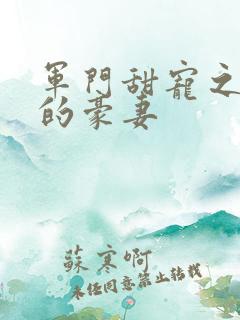 軍門甜寵之
的豪妻
蘇寒啊
未經同意禁止轉載